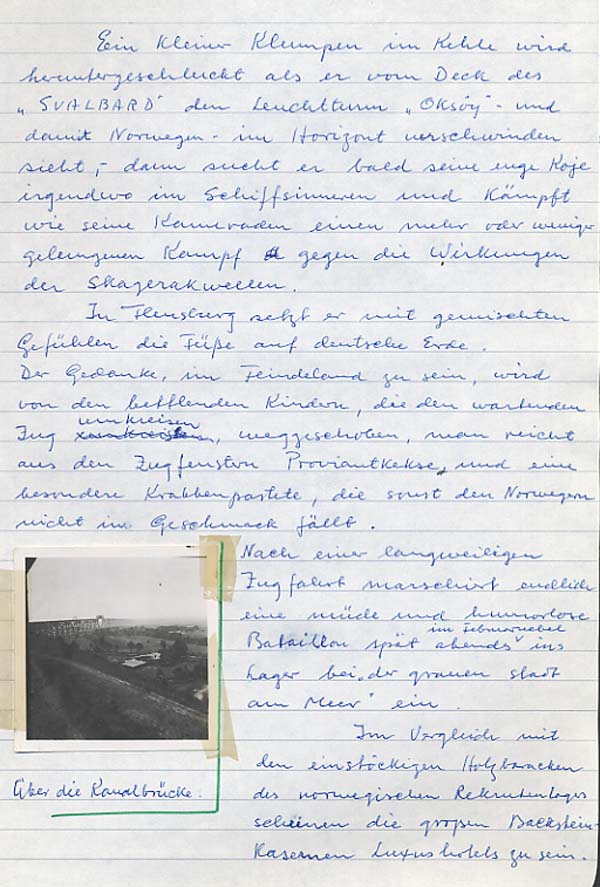 Ein kleiner Klumpen im Kehle wird
heruntergeschluckt als er vom Deck des
„SVALBARD" den Leuchtturm „Oksöy" - und
damit Norwegen - im Horizont verschwinden
sieht, - dann sucht er bald seine enge Koje
irgendwo im Schiffsinneren und kämpft
wie seine Kameraden einen mehr oder weniger
gelungenen Kampf gegen die Wirkungen
der Skagerakwellen.
In Flensburg setzt er mit gemischten
Gefühlen die Füße auf deutsche Erde.
Der Gedanke, im Feindeland zu sein, wird
von den bettlenden Kindern, die den wartenden
Zug umkreisen, weggeschoben, man reicht
aus den Zugfenstern Proviantkekse, und eine
besondere Krabbenpastete, die sonst den Norwegern
nicht im Geschmack fällt.
Nach einer langweiligen
Zugfahrt marschiert endlich
eine müde und humorlose
Bataillon spät abends im Februarnebel ins
Lager bei „der grauen Stadt
am Meer" ein.
Im Vergleich mit
den einstöckigen Holzbaracken
des norwegischen Rekrutenlagers
scheinen die großen Backstein-
Kasernen Luxushotels zu sein.
Über die Kanalbrücke.